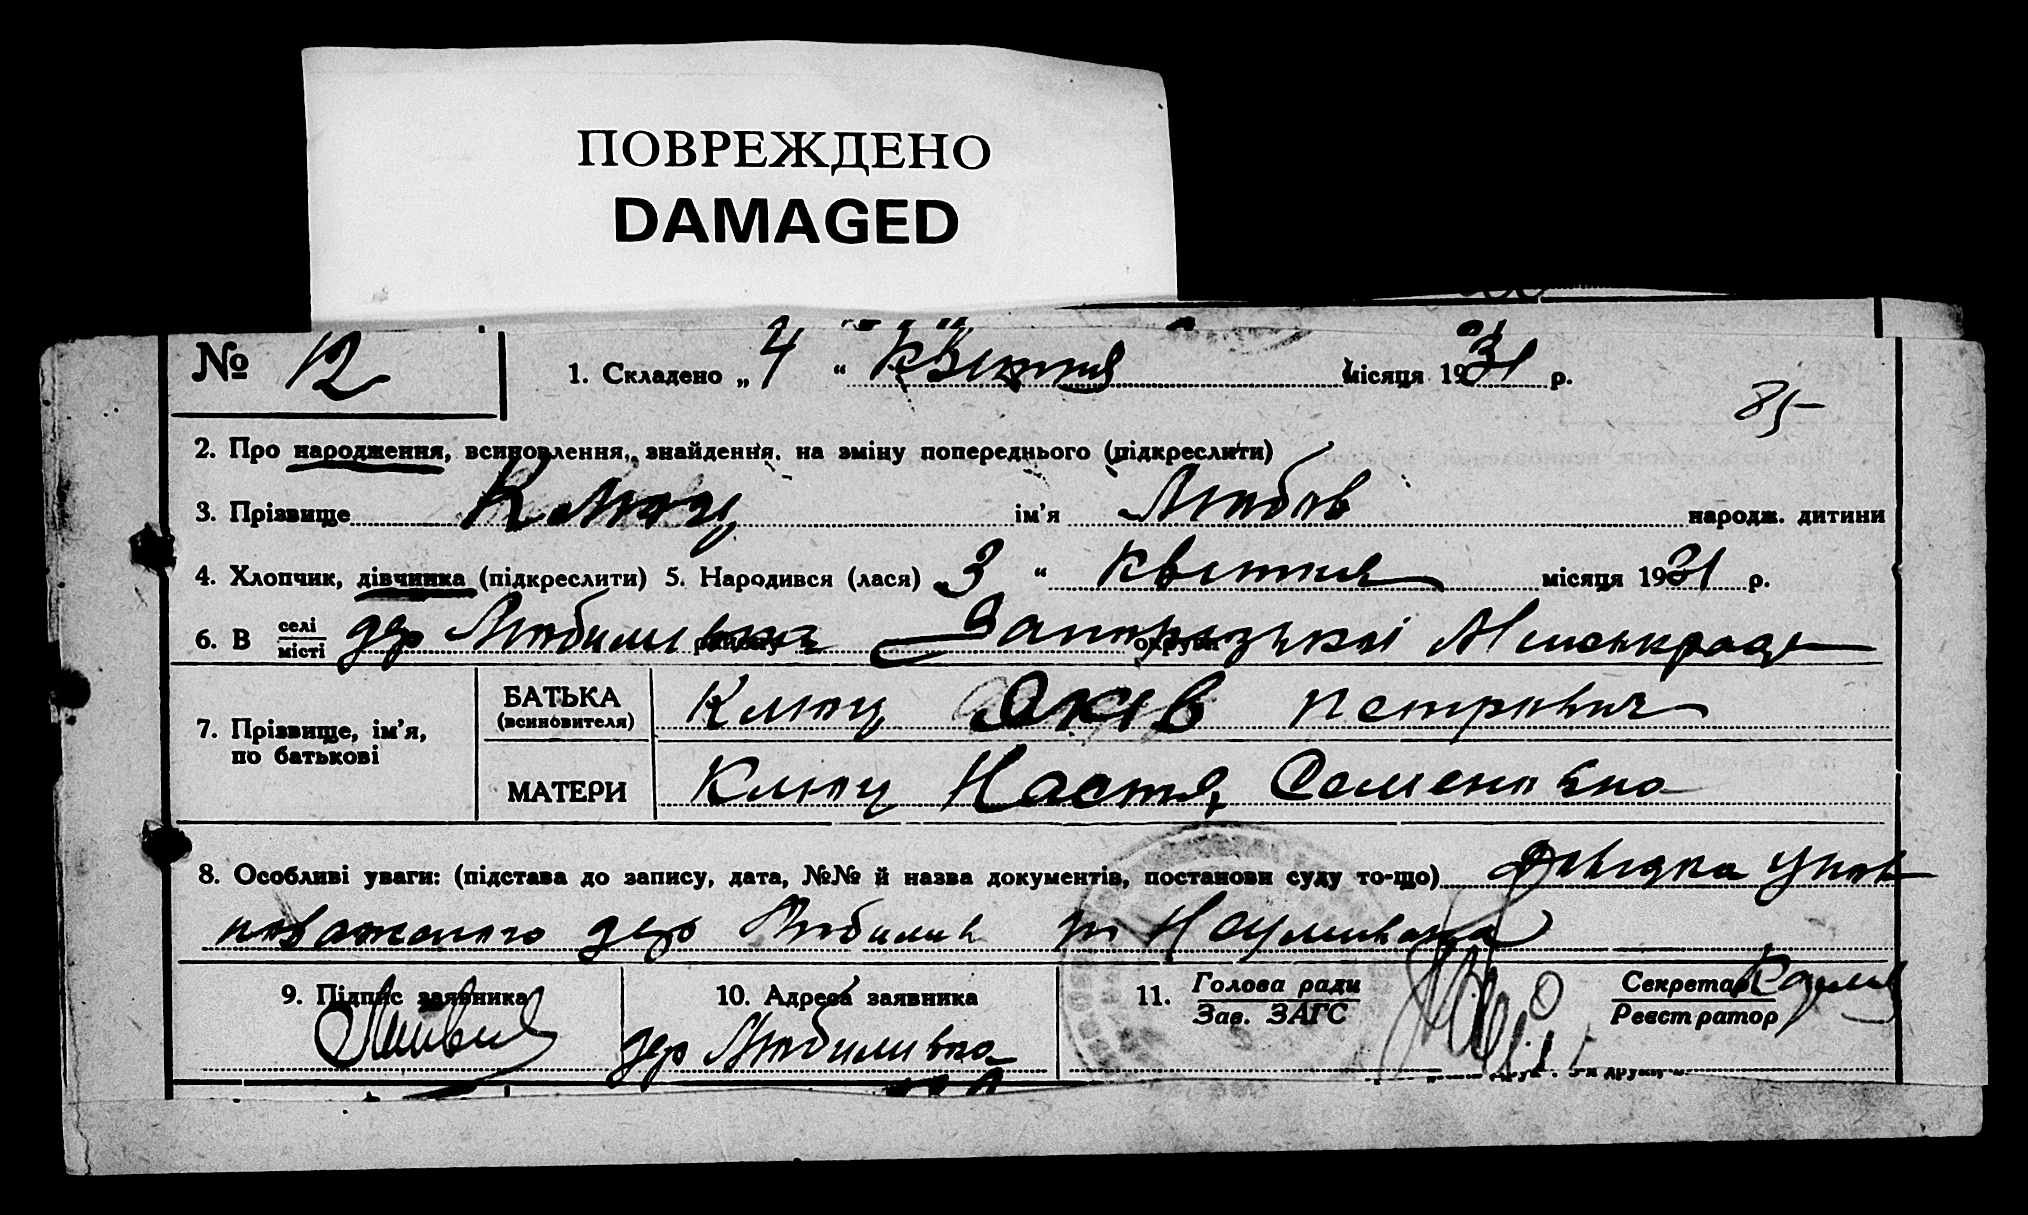 ПОВРЕЖДЕНО
DAMAGED
№ 12 1. Складено „ 4 “ квітня місяця 1931 р.
85
2. Про народження, всиновлення, знайдення, на зміну попереднього (підкреслити)
3. Прізвище Клюц ім’я Любов народж. дитини
4. Хлопчик, дівчинка (підкреслити) 5. Народився (лася) 3 “ квітня місяця 1931 р.
6. В селі місті дер району Запорізької округи Міськради
7. Прізвище, ім’я, по батькові
БАТЬКА (всиновителя) Клюц Яків Петрович
МАТЕРИ Клюц Настя Семенівна
8. Особливі уваги: (підстава до запису, дата, №№ й назва документів, постанови суду то-що) Довідка упов
новаженого дер т Наумівка
9. Підпис заявника 10. Адреса заявника 11. Голова ради Зав. ЗАГС Секретар Реєстратор
дер Любимівка